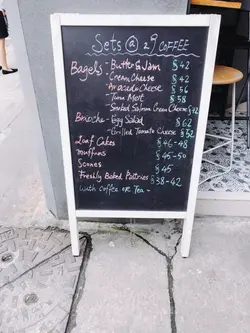 Sets @ 29 COFFEE
Bagels - Butter & Jam $42
- Cream Cheese $42
- Avocado Cheese $56
- Tuna Melt $58
- Smoked Salmon Cream Cheese $72
Brioche - Egg Salad $62
- Grilled Tomato Cheese $52
Loaf Cakes $46-48
Muffins $45-50
Scones $45
Freshly Baked Pastries $38-42
with coffee or Tea -